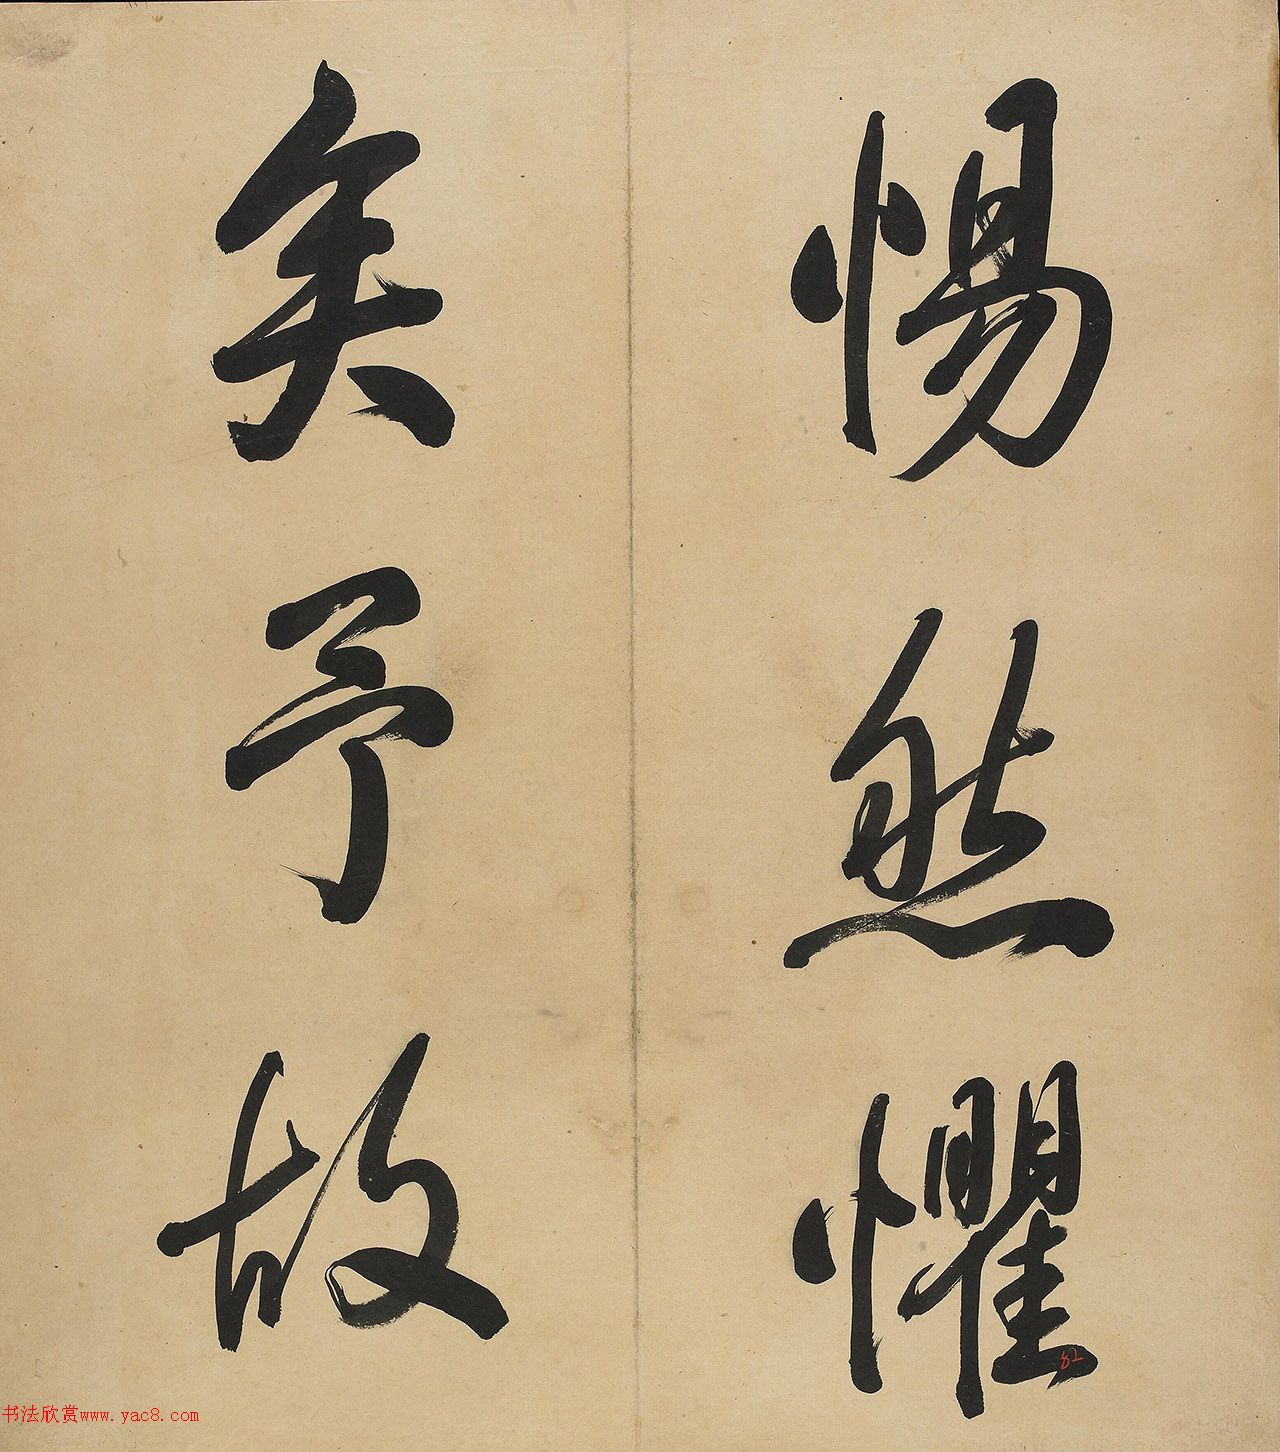 惕然懼
矣予故
82
书法欣赏www.yac8.com